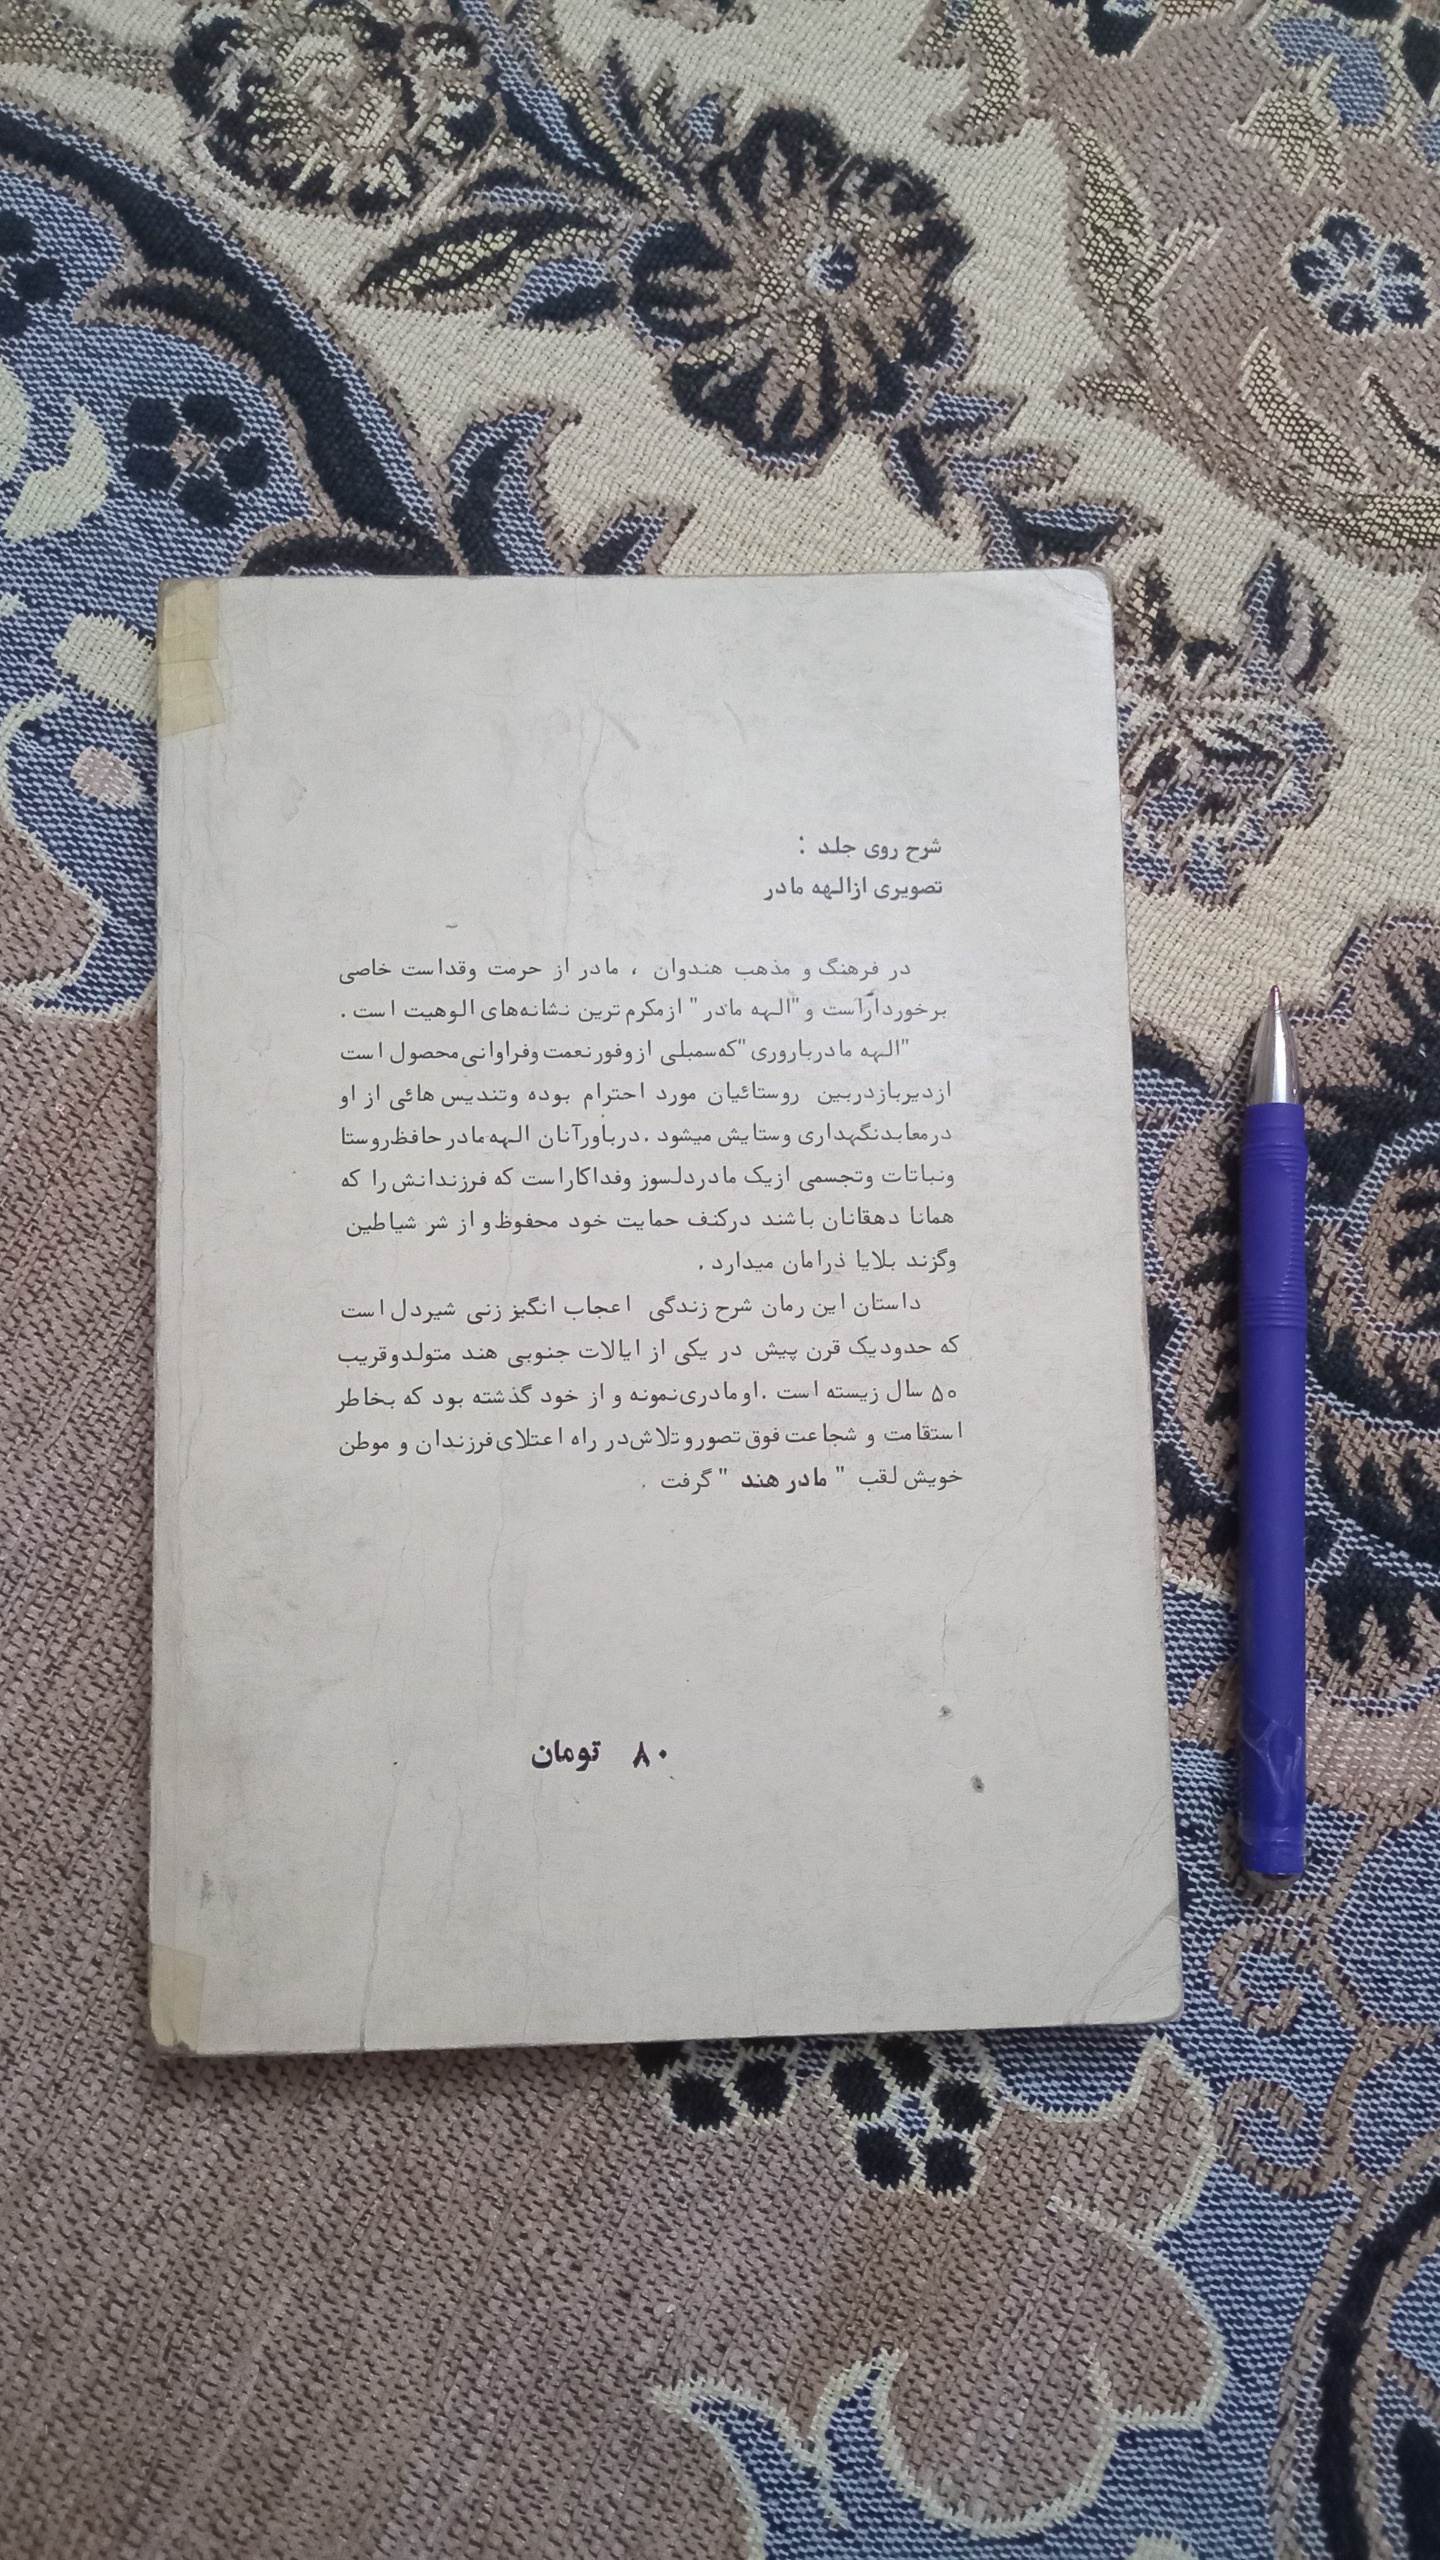 شرح روی جلد :
تصویری از الهه مادر
در فرهنگ و مذهب هندوان ، مادر از حرمت و قداست خاصی
برخوردار است و "الهه مادر" از مکرم ترین نشانه‌های الوهیت است .
"الهه مادر باروری" که سمبلی از وفور نعمت و فراوانی محصول است
از دیرباز در بین روستائیان مورد احترام بوده و تندیس هائی از او
در معابد نگهداری و ستایش میشود . در باور آنان الهه مادر حافظ روستا
و نباتات و تجسمی از یک مادر دلسوز و فداکار است که فرزندانش را که
همانا دهقانان باشند در کنف حمایت خود محفوظ و از شر شیاطین
و گزند بلایا درامان میدارد .
داستان این رمان شرح زندگی اعجاب انگیز زنی شیردل است
که حدود یک قرن پیش در یکی از ایالات جنوبی هند متولد و قریب
۵۰ سال زیسته است . او مادری نمونه و از خود گذشته بود که بخاطر
استقامت و شجاعت فوق تصور و تلاش در راه اعتلای فرزندان و موطن
خویش لقب " مادر هند " گرفت .
۸۰ تومان